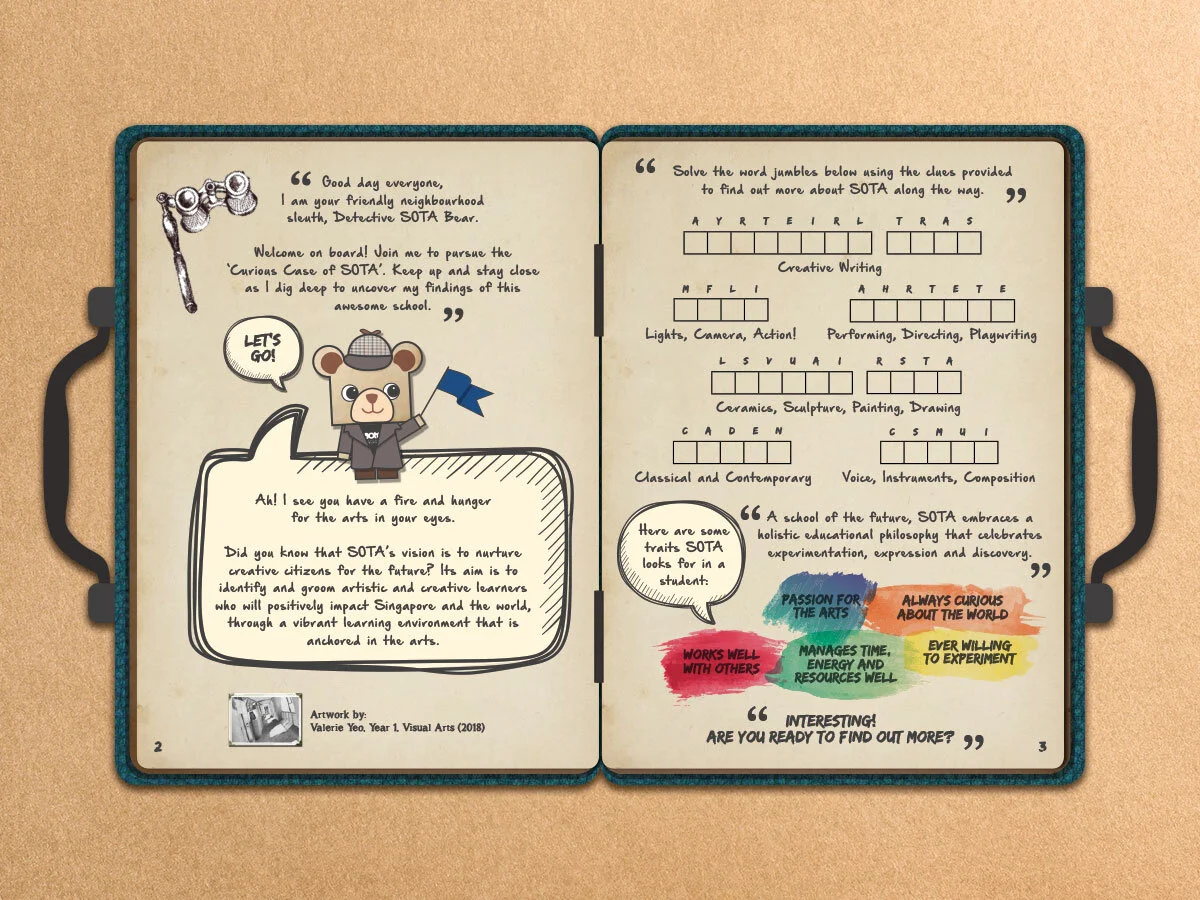 “ Good day everyone,
I am your friendly neighbourhood
sleuth, Detective SOTA Bear.
Welcome on board! Join me to pursue the
‘Curious Case of SOTA’. Keep up and stay close
as I dig deep to uncover my findings of this
awesome school. ”
LET'S
GO!
SOTA
Ah! I see you have a fire and hunger
for the arts in your eyes.
Did you know that SOTA's vision is to nurture
creative citizens for the future? Its aim is to
identify and groom artistic and creative learners
who will positively impact Singapore and the world,
through a vibrant learning environment that is
anchored in the arts.
Artwork by:
Valerie Yeo, Year 1, Visual Arts (2018)
2
“ Solve the word jumbles below using the clues provided
to find out more about SOTA along the way. ”
A Y R T E I R L T R A S
Creative Writing
M F L I A H R T E T E
Lights, Camera, Action! Performing, Directing, Playwriting
L S V U A I R S T A
Ceramics, Sculpture, Painting, Drawing
C A D E N C S M U I
Classical and Contemporary Voice, Instruments, Composition
Here are some
traits SOTA
looks for in a
student:
“ A school of the future, SOTA embraces a
holistic educational philosophy that celebrates
experimentation, expression and discovery. ”
PASSION FOR
THE ARTS
ALWAYS CURIOUS
ABOUT THE WORLD
WORKS WELL
WITH OTHERS
MANAGES TIME,
ENERGY AND
RESOURCES WELL
EVER WILLING
TO EXPERIMENT
“ INTERESTING!
ARE YOU READY TO FIND OUT MORE? ”
3